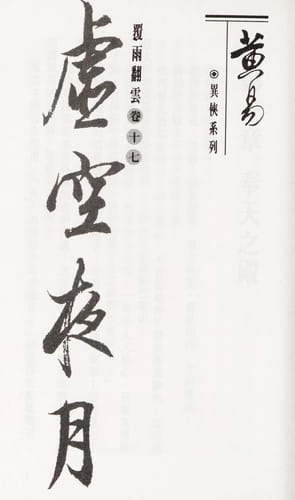 黄易
異俠系列
覆雨翻雲卷十七
虛空夜月